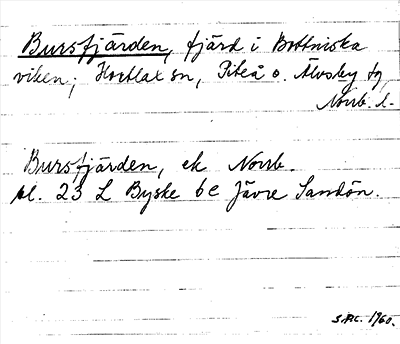 Bursfjärden, fjärd i Bottniska
viken; Hortlax sn, Piteå o. Älvsby tg
Norrb. l.
Bursfjärden, ek Norrb.
bl. 23 L Byske 6e Jävre Sandön.
1960.